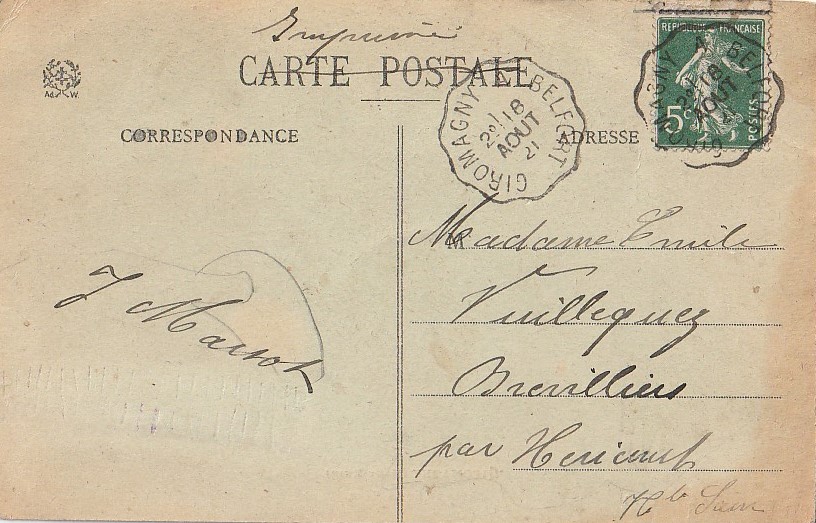 Imprimé
CARTE POSTALE
Ad. W.
CORRESPONDANCE
ADRESSE
GIROMAGNY A BELFORT
2º/ 18
AOUT
21
REPUBLIQUE FRANÇAISE
5c
POSTES
GIROMAGNY A BELFORT
18
AOUT
J Marsot
M
Madame Emile
Vuillequez
Brevilliers
par Hericourt
Hte Saone